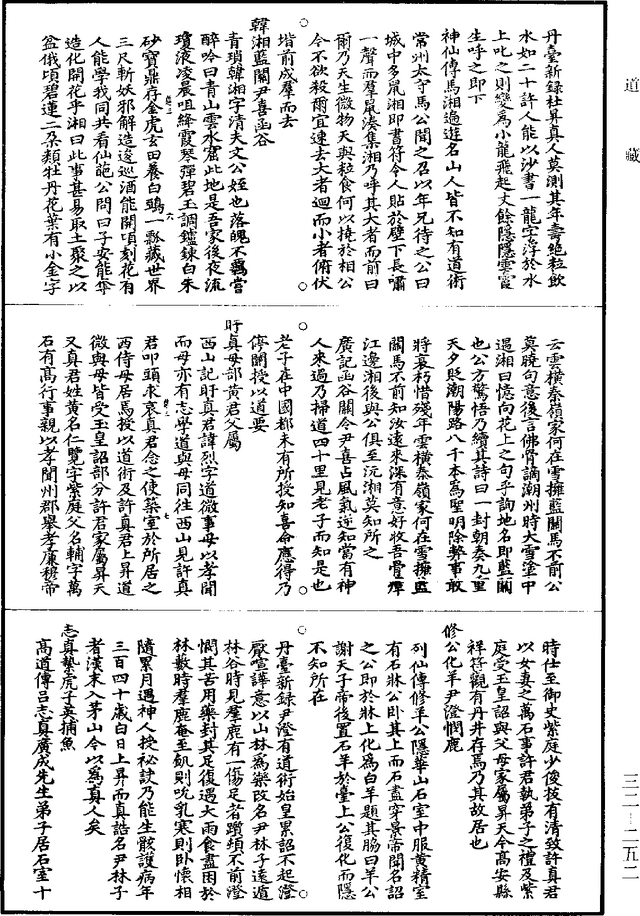 道藏
丹臺新錄杜昇真人莫測其年壽絕粒飲
水如二十許人能以沙書一龍字浮於水
上叱之則變為小龍飛起丈餘隱隱雲霞
生呼之即下
神仙傳馬湘過遊名山人皆不知有道術
常州太守馬公聞之召以年兄待之公曰
城中多鼠湘即書符令人貼於壁下長嘯
一聲而羣鼠湊集湘乃呼其大者而前曰
爾乃天生微物天與粒食何以撓於相公
今不欲殺爾宜速去大者迴而小者俯伏
堦前成羣而去
韓湘藍關尹喜函谷
青瑣韓湘字清夫文公姪也落魄不羈當
醉吟曰青山雲水窟此地是吾家後夜流
瓊液凌晨咀絳霞琴彈碧玉調鑪鍊白朱
砂寶鼎存金虎玄田養白鵶一瓢藏世界
三尺斬妖邪解造逡巡酒能開頃刻花有
人能學我同共看仙葩公問曰子安能奪
造化開花乎湘曰此事甚易取土聚之以
盆俄頃碧蓮二朶類牡丹花葉有小金字
云雲橫秦嶺家何在雪擁藍關馬不前公
莫曉句意後言佛骨謫潮州時大雪塗中
遇湘曰憶向花上之句乎詢地名即藍關
也公方驚悟乃續其詩曰一封朝奏九重
天夕貶潮陽路八千本為聖明除弊事敢
將衰朽惜殘年雲橫秦嶺家何在雪擁藍
關馬不前知汝遠來深有意好收吾骨瘴
江邊湘後與公俱至沅湘莫知所之
廣記函谷關令尹喜占風氣逆知當有神
人來過乃掃道四十里見老子而知是也
老子在中國都未有所授知喜命應得乃
停關授以道要
旴真母部黃君父屬
西山記旴真君諱烈字道微事母以孝聞
而母亦有志學道與母同往西山見許真
君叩頭求哀真君念之使築室於所居之
西侍母居焉授以道術及許真君上昇道
微與母皆受玉皇詔部分許君家屬昇天
又真君姓黃名仁覽字紫庭父名輔字萬
石有高行事親以孝聞州郡舉孝廉穆帝
時仕至御史紫庭少俊拔有清致許真君
以女妻之萬石事許君執弟子之禮及紫
庭受玉皇詔與父母家屬昇天今高安縣
祥符觀有丹井存焉乃其故居也
修公化羊尹澄憫鹿
列仙傳修羊公隱華山石室中服黃精室
有石牀公臥其上而石盡穿景帝聞名詔
之公即於牀上化為白羊題其脇曰羊公
謝天子帝後置石羊於臺上公復化而隱
不知所在
丹臺新錄尹澄有道術始皇累詔不起澄
厭喧譁意以山林為樂改名尹林子遠遁
林谷時見羣鹿有一傷足者躓頓不前澄
憫其苦用藥封其足復遇大雨食盡困於
林藪時羣鹿奄至飢則吮乳寒則臥懷相
隨累月遇神人授祕訣乃能生骸護病年
三百四十歲白日上昇而真誥名尹林子
者漢末入茅山今以為真人矣
志真摯虎子英捕魚
高道傳呂志真廣成先生弟子居石室十
三二—二五二